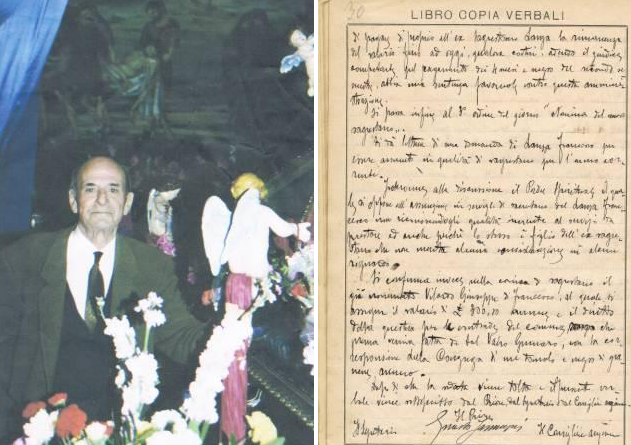 30
LIBRO COPIA VERBALI
di pagare di proprio all'ex sagrestano Lanza la rimanenza
del salario fino ad oggi, qualora costui, adendo il giudice
competente pel pagamento dei
mestre, abbia una sentenza favorevole contro questa ammini-
strazione.
Si passa infine al 3° ordine del giorno "Nomina del nuovo
sagrestano".
Si dà lettura di una domanda di Lanza Francesco per
essere assunto in qualità di sagrestano per l'anno cor-
rente.
alla discussione il Padre Spirituale il qua-
le si oppone all'assunzione in servizio di sacrestano del Lanza Fran-
cesco non riconoscendogli qualità inerente al servizio da
prestare ed anche perché lo stesso è figlio dell'ex sagre-
stano che non merita alcuna considerazione in alcun
riguardo.
Si conferma invece nella carica di sagrestano il
già Giuseppe di Francesco, al quale si
assegna il salario di £ 800,00 annue e il diritto
della questua per le contrade del comune che
prima veniva fatta da Gennaro, con la cor-
responsione della Congrega di un tomolo e mezzo di gra-
ne, annuo.
Dopo di che la seduta viene tolta e il presente ver-
bale viene sottoscritto dal Priore, dal Segretario e dal Consiglio anziano
Il Priore
Il Segretario
Il Consigliere anziano